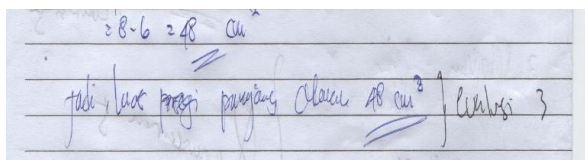 = 8 - 6 = 48 cm²
Jadi, luas persegi panjang adalah 48 cm² } evaluasi 3